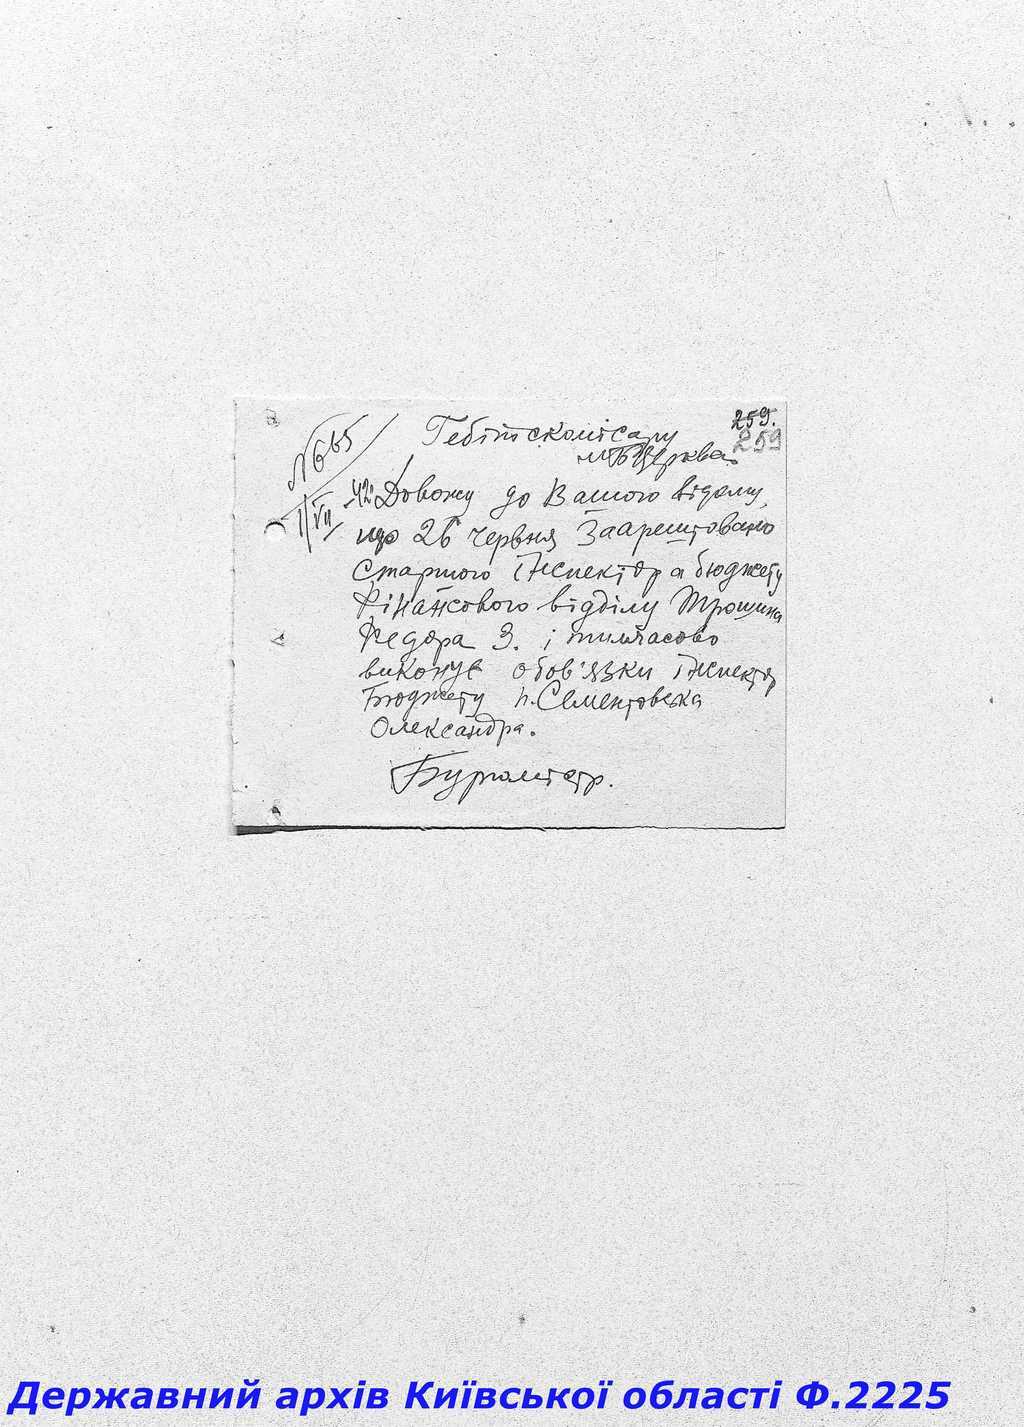 259.
259
№ 665
1/VII 42
Гебітскомісару
м. Б Церква.
Довожу до Вашого відому,
що 26 червня Заарештовано
Старшого Інспектора бюджету
Фінансового відділу Трошина
Федора З. і тимчасово
виконує обов'язки інспектор
Бюджету п. Сементовська
Олександра.
Бурмістр.
Державний архів Київської області Ф.2225